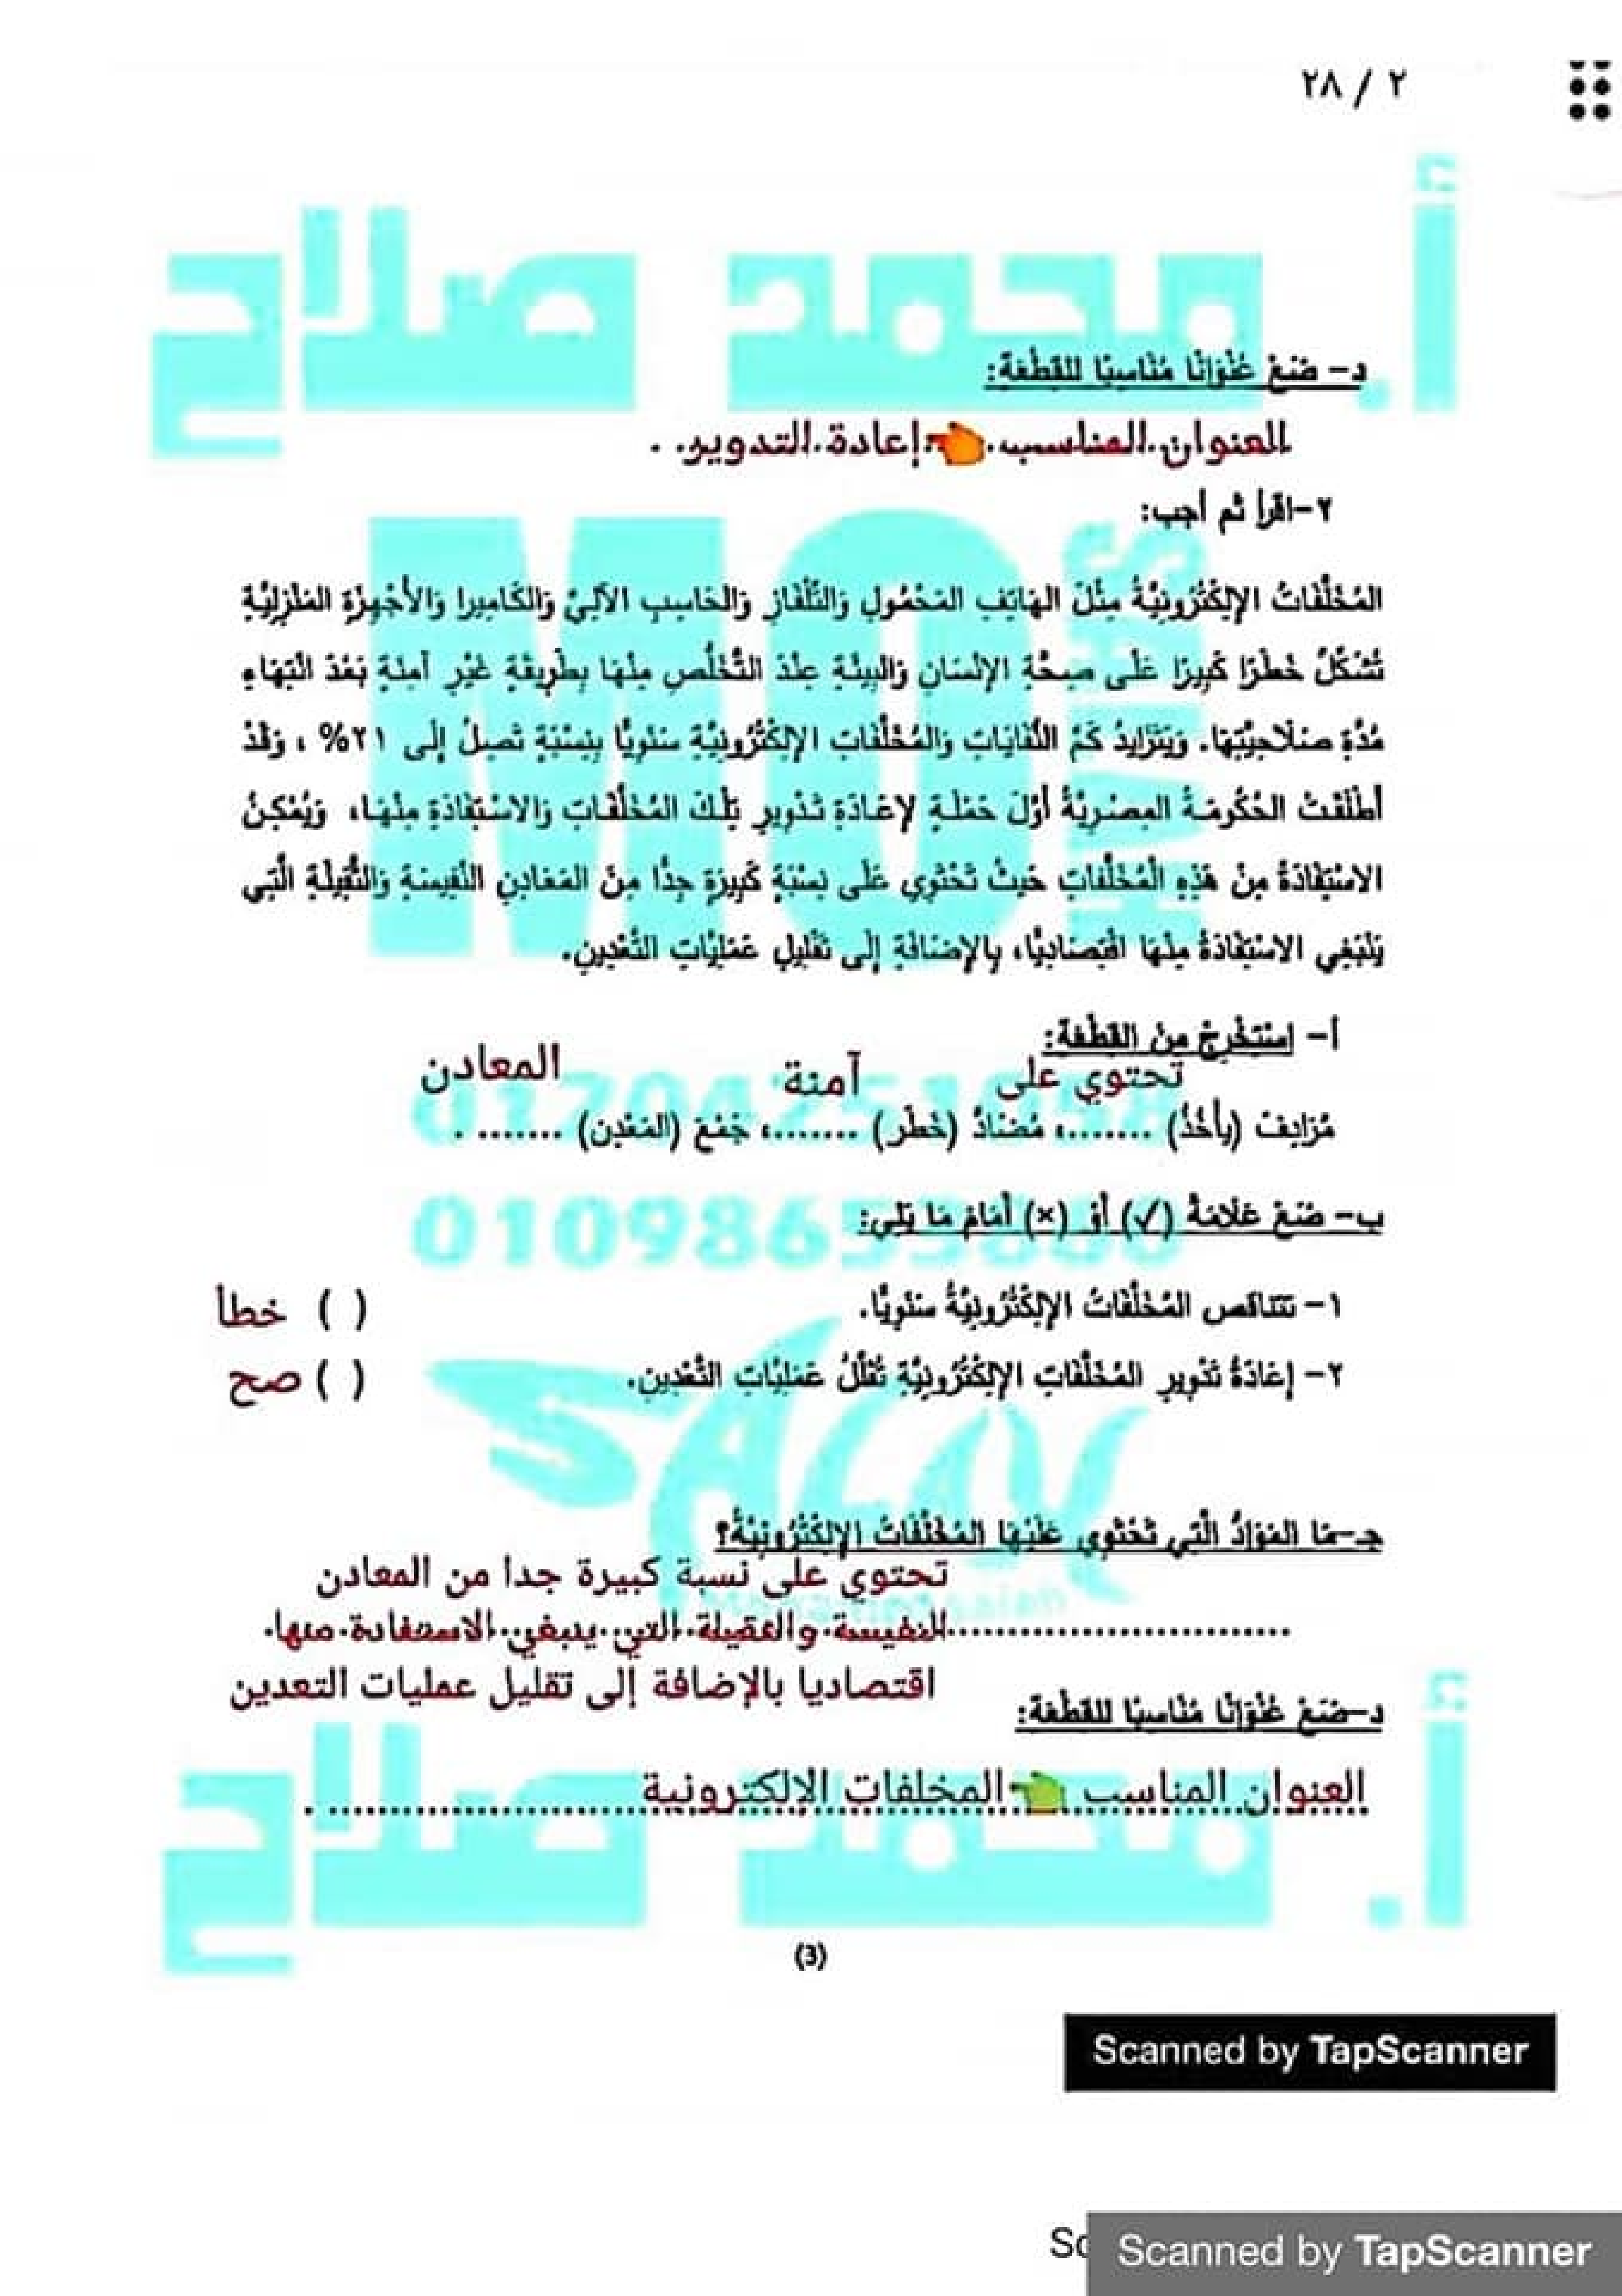 ٢ / ٢٨
أ. محمد صلاح
د- ضَعْ عُنْوَانًا مُنَاسِبًا للقِطْعَةِ:
العنوان المناسب 👈 إعادة التدوير. .
٢-اقرأ ثم أجب:
المُخَلَّفَاتُ الإِلِكْتُرُونِيَّةُ مِثْلَ الهَاتِفِ المَحْمُولِ وَالتِّلْفَازِ وَالحَاسِبِ الآلِيِّ وَالكَامِيرا وَالأَجْهِزَةِ المَنْزِلِيَّةِ
تُشَكِّلُ خَطَرًا كَبِيرًا عَلَى صِحَّةِ الإِنْسَانِ وَالبِيئَةِ عِنْدَ التَّخَلُّصِ مِنْهَا بِطَرِيقَةٍ غَيْرِ آمِنَةٍ بَعْدَ انْتِهَاءِ
مُدَّةِ صَلَاحِيَّتِهَا. وَيَتَزَايَدُ كَمُّ النُّفَايَاتِ وَالمُخَلَّفَاتِ الإِلِكْتُرُونِيَّةِ سَنَوِيًّا بِنِسْبَةٍ تَصِلُ إِلَى ٢١% ، وَقَدْ
أَطْلَقَتْ الحُكُومَةُ المِصْرِيَّةُ أَوَّلَ حَمْلَةٍ لإِعَادَةِ تَدْوِيرِ تِلْكَ المُخَلَّفَاتِ وَالاسْتِفَادَةِ مِنْهَا، وَيُمْكِنُ
الاسْتِفَادَةُ مِنْ هَذِهِ الْمُخَلَّفَاتِ حَيثُ تَحْتَوِي عَلَى نِسْبَةٍ كَبِيرَةٍ جِدًّا مِنَ المَعَادِنِ النَّفِيسَةِ وَالثَّقِيلَةِ الَّتِي
يَنْبَغِي الاسْتِفَادَةُ مِنْهَا اقْتِصَادِيًّا، بِالإِضَافَةِ إِلَى تَقْلِيلِ عَمَلِيَّاتِ التَّعْدِينِ.
أ- اِسْتَخْرِجْ مِنَ القِطْعَةِ:
تحتوي على آمنة المعادن
مُرَادِفَ (يأْخُذُ) ........، مُضَادَّ (خَطْر) ........، جَمْعَ (المَعْدِن) ....... .
ب- ضَعْ عَلَامَةَ (✓) أَوْ (×) أَمَامَ مَا يَلِي:
١- تتناقص المُخَلَّفَاتُ الإِلِكْتُرُونِيَّةُ سَنَوِيًّا. ( ) خطأ
٢- إِعَادَةُ تَدْوِيرِ المُخَلَّفَاتِ الإِلِكْتُرُونِيَّةِ تُقَلِّلُ عَمَلِيَّاتِ التَّعْدِينِ. ( ) صح
جـ-مَا المَوَادُّ الَّتِي تَحْتَوِي عَلَيْهَا المُخَلَّفَاتُ الإِلِكْتُرُونِيَّةُ؟
تحتوي على نسبة كبيرة جدا من المعادن
النفيسة والعقيلة التي ينبغي الاستفادة منها.
اقتصاديا بالإضافة إلى تقليل عمليات التعدين
د-ضَعْ عُنْوَانًا مُنَاسِبًا للقِطْعَةِ:
العنوان المناسب 👈 المخلفات الإلكترونية
أ. محمد صلاح
(3)
Scanned by TapScanner
Scanned by TapScanner